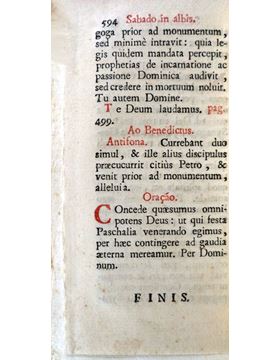 594 Sabado in albis.
goga prior ad monumentum,
sed minimè intravit: quia le-
gis quidem mandata percepit,
prophetias de incarnatione ac
passione Dominica audivit,
sed credere in mortuum noluit.
Tu autem Domine.
Te Deum laudamus. pag.
499.
Ao Benedictus.
Antifona. Currebant duo
simul, & ille alius discipulus
præcucurrit citiùs Petro, &
venit prior ad monumentum,
alleluia.
Oração.
Concede quæsumus omni-
potens Deus: ut qui festa
Paschalia venerando egimus,
per hæc contingere ad gaudia
æterna mereamur. Per Domi-
num.
FINIS.